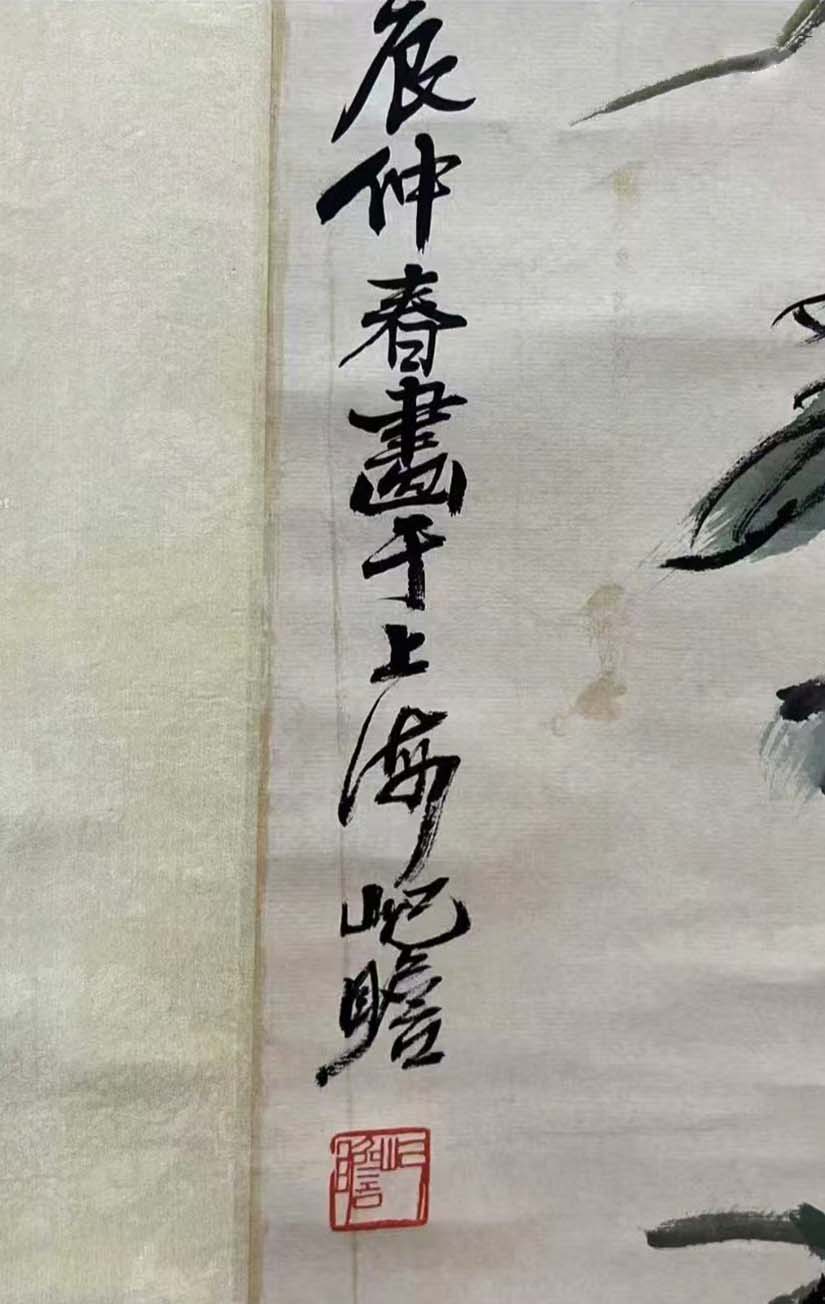 辰仲春畫于上海屺瞻
屺瞻